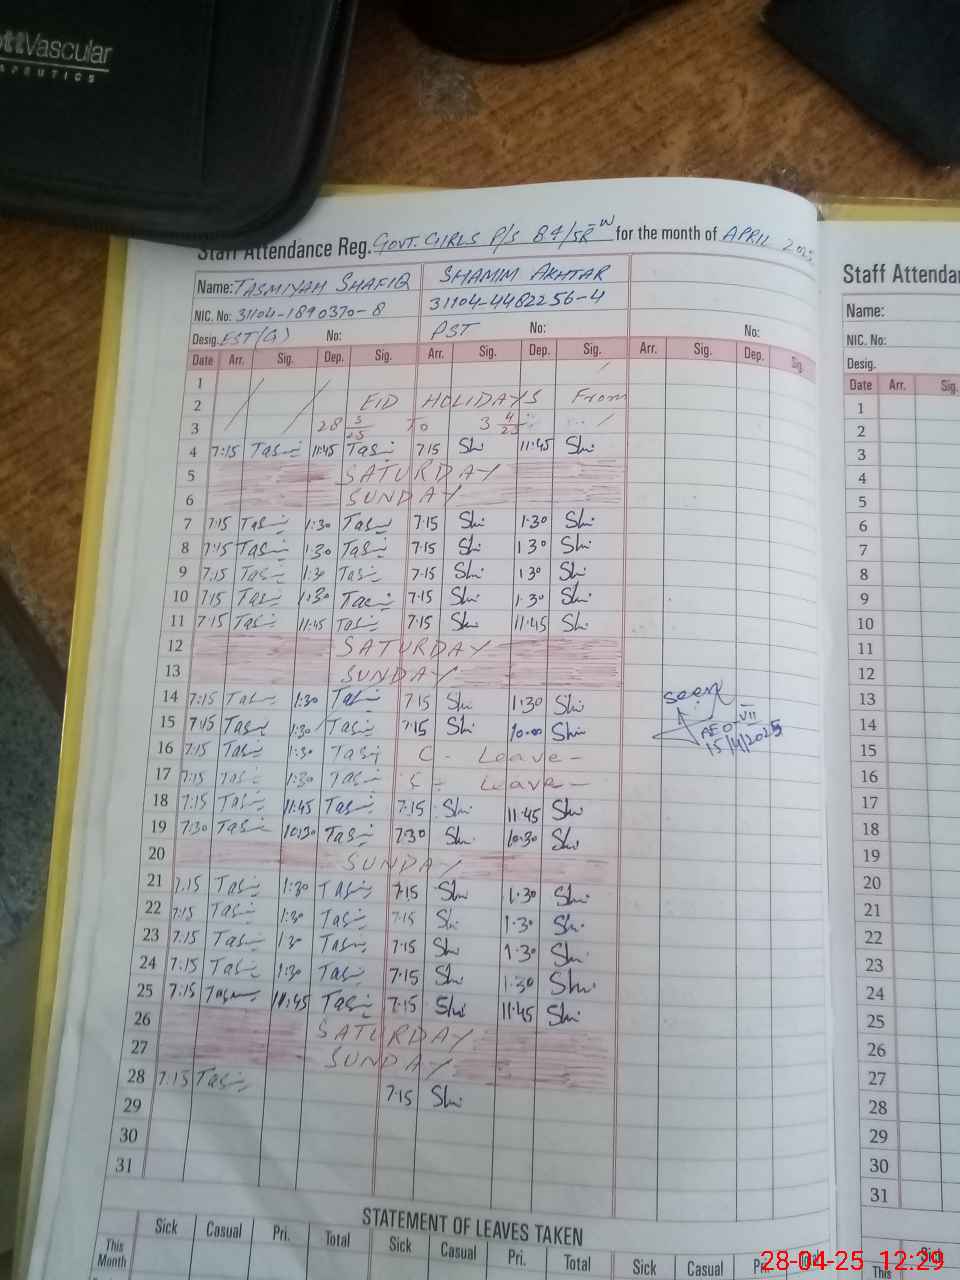 ttVascular
APEUTICS
Staff Attendance Reg. GOVT. GIRLS P/S 84/5R W for the month of APRIL 202
Name: TASMIYAH SHAFIQ SHAMIM AKHTAR
NIC. No: 31104-1890370-8 31104-4482256-4
Desig. EST(G) No: PST No: No:
Date Arr. Sig. Dep. Sig. Arr. Sig. Dep. Sig. Arr. Sig. Dep. Sig.
1
2 EID HOLIDAYS From
3 28 3/25 To 3 4/25
4 7:15 Tasنیہ 11:45 Tasنیہ 7:15 Shi 11:45 Shi
5 SATURDAY
6 SUNDAY
7 7:15 Tasنیہ 1:30 Tasنیہ 7:15 Shi 1:30 Shi
8 7:15 Tasنیہ 1:30 Tasنیہ 7:15 Shi 1:30 Shi
9 7:15 Tasنیہ 1:30 Tasنیہ 7:15 Shi 1:30 Shi
10 7:15 Tasنیہ 1:30 Tasنیہ 7:15 Shi 1:30 Shi
11 7:15 Tasنیہ 11:45 Tasنیہ 7:15 Shi 11:45 Shi
12 SATURDAY
13 SUNDAY
14 7:15 Tasنیہ 1:30 Tasنیہ 7:15 Shi 1:30 Shi
15 7:15 Tasنیہ 1:30 Tasنیہ 7:15 Shi 10:00 Shi
16 7:15 Tasنیہ 1:30 Tasنیہ C - Leave -
17 7:15 Tasنیہ 1:30 Tasنیہ C - Leave -
18 7:15 Tasنیہ 11:45 Tasنیہ 7:15 Shi 11:45 Shi
19 7:30 Tasنیہ 10:30 Tasنیہ 7:30 Shi 10:30 Shi
20 SUNDAY
21 7:15 Tasنیہ 1:30 Tasنیہ 7:15 Shi 1:30 Shi
22 7:15 Tasنیہ 1:30 Tasنیہ 7:15 Shi 1:30 Shi
23 7:15 Tasنیہ 1:30 Tasنیہ 7:15 Shi 1:30 Shi
24 7:15 Tasنیہ 1:30 Tasنیہ 7:15 Shi 1:30 Shi
25 7:15 Tasنیہ 11:45 Tasنیہ 7:15 Shi 11:45 Shi
26 SATURDAY
27 SUNDAY
28 7:15 Tasنیہ 7:15 Shi
29
30
31
Seen
AEO-VII
15/4/2025
STATEMENT OF LEAVES TAKEN
Sick Casual Pri. Total Sick Casual Pri. Total Sick Casual Pri.
This Month
Staff Attendan
Name:
NIC. No:
Desig.
Date Arr. Sig.
1
2
3
4
5
6
7
8
9
10
11
12
13
14
15
16
17
18
19
20
21
22
23
24
25
26
27
28
29
30
31
Sick
This
28-04-25 12:29